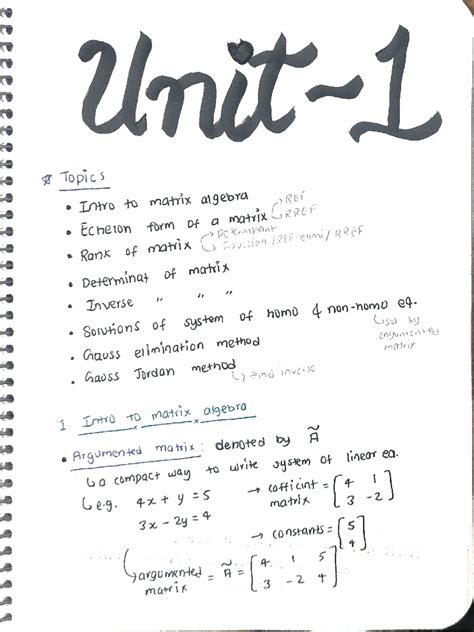 Unit-1
Topics
• Intro to matrix algebra
• Echelon form of a matrix → REF → RREF
• Rank of matrix → Determinant
• Determinat of matrix
• Inverse " " "
• Solutions of system of homo & non-homo eq.
• Gauss elimination method
• Gauss Jordan method → Find inverse
1. Intro to matrix algebra
• Argumented matrix: denoted by Ã
↳ a compact way to write system of linear eq.
↳ e.g. 4x + y = 5 → cofficint matrix = [4 1
3x - 2y = 4 3 -2]
→ constants = [5
4]
↳ argumented matrix = Ã = [4 1 5
3 -2 4]